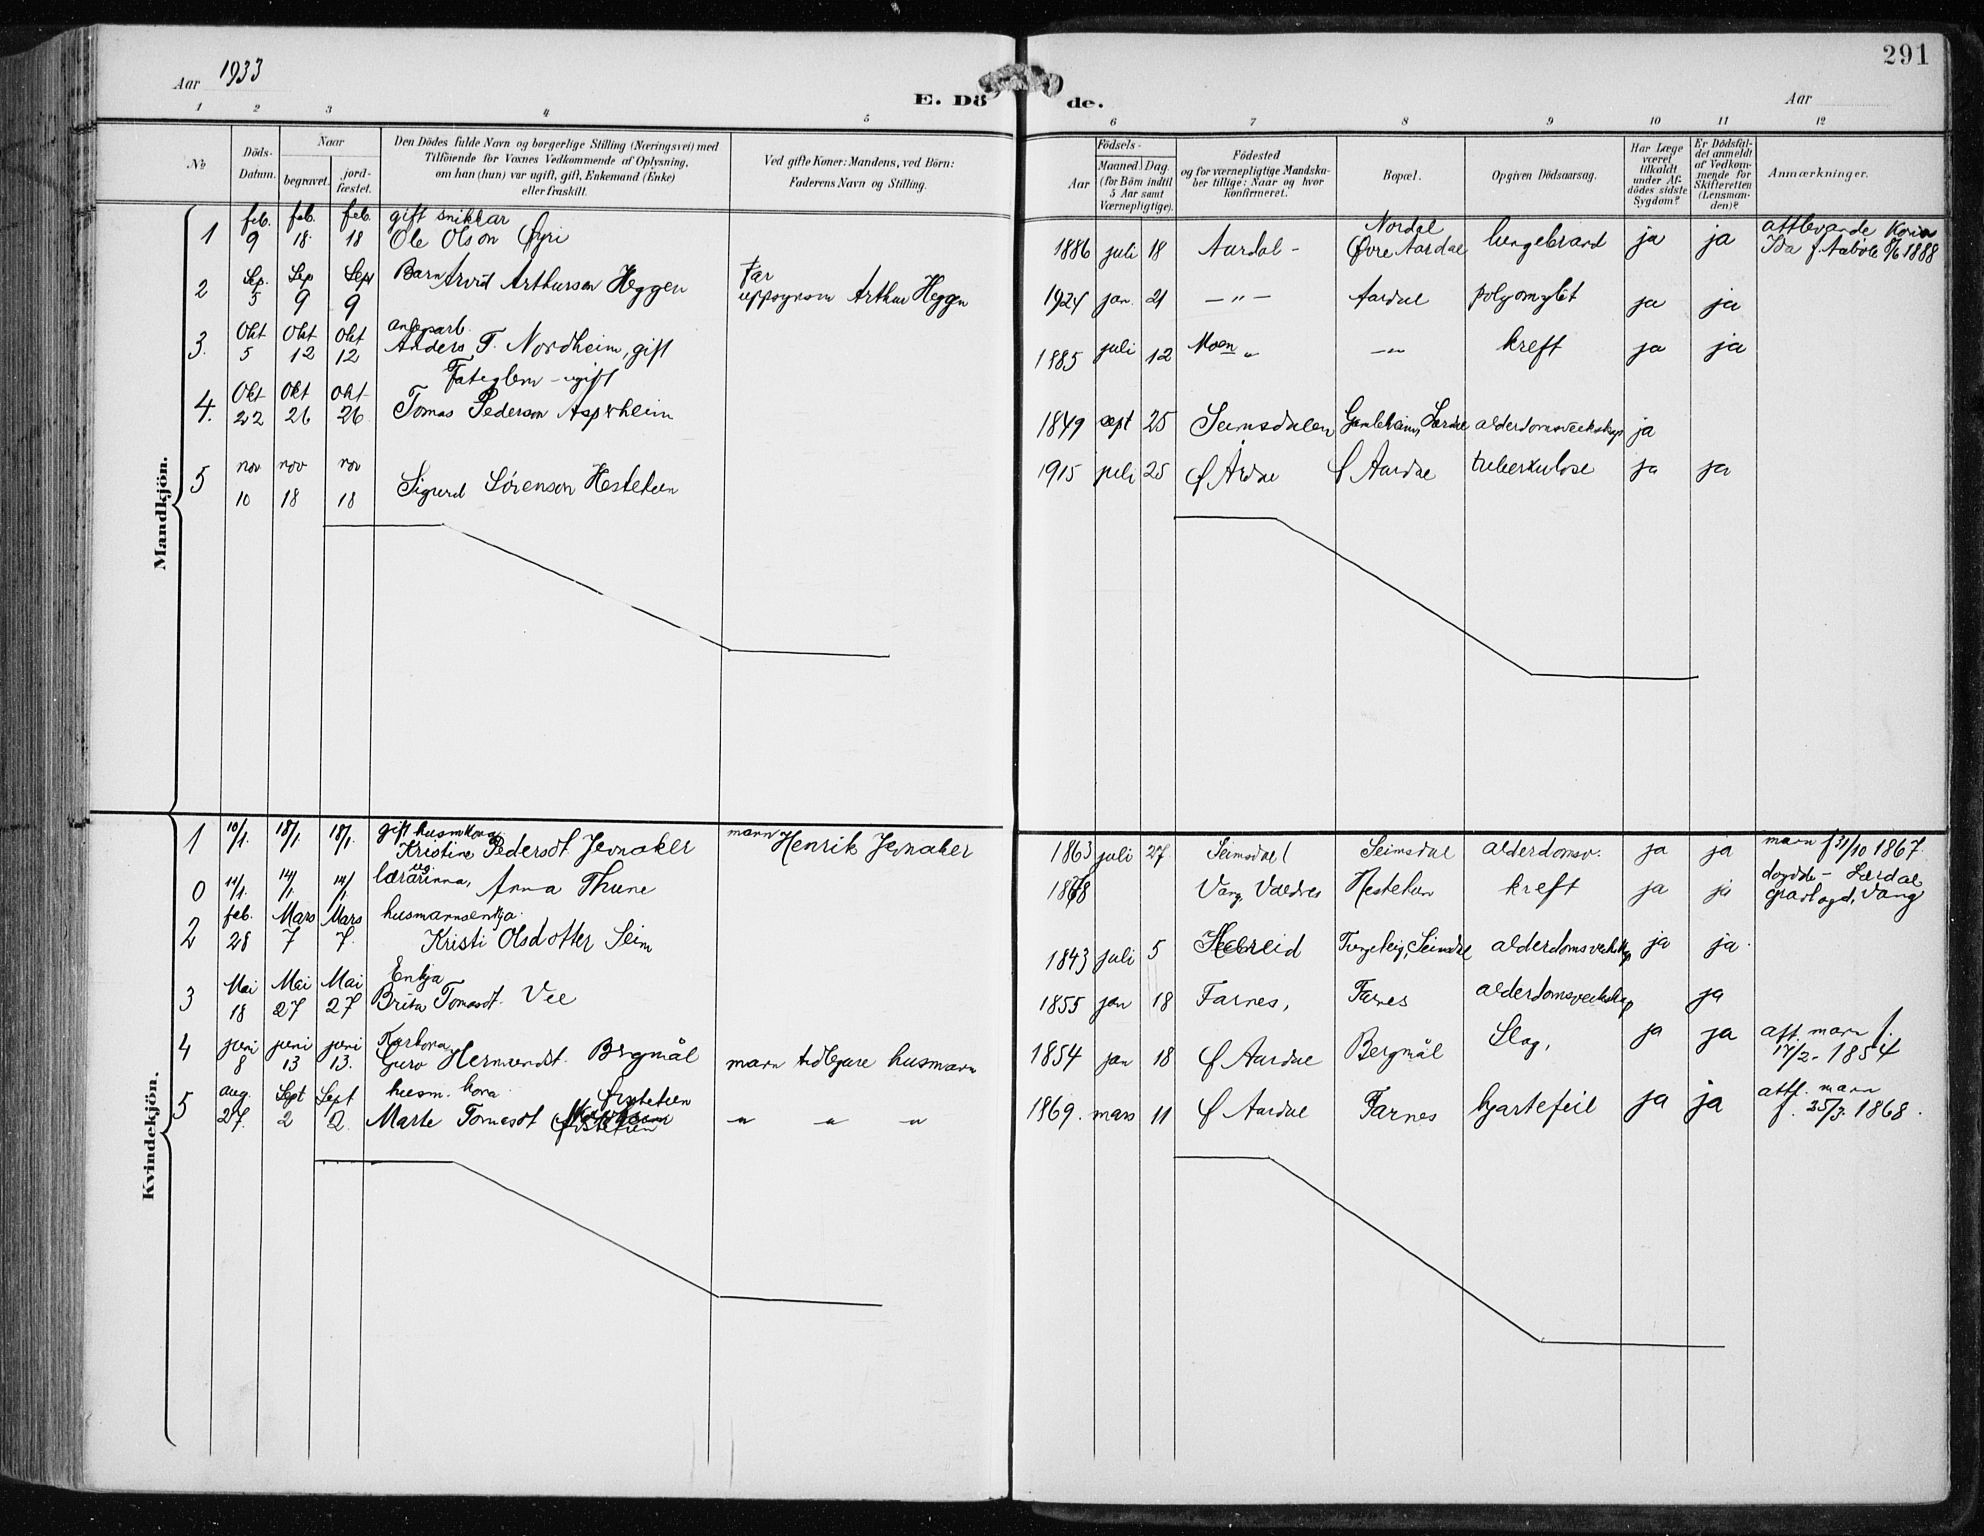 291
Aar 1933
E. Döde.
Aar
1 2 3 4 5 6 7 8 9 10 11 12
No
Döds-Datum.
Naar
begravet.
jordfæstet.
Den Dödes fulde Navn og borgerlige Stilling (Næringsvei) med
Tilföiende for Voxnes Vedkommende af Oplysning,
om han (hun) var ugift, gift, Enkemand (Enke)
eller fraskilt.
Ved gifte Koner: Mandens, ved Börn:
Faderens Navn og Stilling.
Födsels-
Aar
Maaned. Dag.
(for Börn indtil
5 Aar samt
Værnepligtige).
Födested
og for værnepligtige Mandskaber tillige: Naar og hvor
konfirmeret.
Bopæl.
Opgiven Dödsaarsag.
Har Læge
været
tilkaldt
under Afdödes sidste
Sygdom?
Er Dödsfaldet anmeldt
af Vedkommende for
Skifteretten
(Lensmanden)?
Anmærkninger.
Mandkjön.
1 feb. 9 feb. 18 feb. 18 gift snikkar Ole Olson Øyri 1886 juli 18 Aardal - Nordal Øvre Aardal lungebrand ja ja attlevande Kona Ida f. 1888
2 Sep. 5 Sep 9 Sept 9 Barn Arvid Arthurson Heggen Far uppsynsm Arthur Heggen 1924 jan. 21 - " - Aardal polyomylit ja ja
3. Okt 5 Okt 12 Okt 12 Anders T. Nordheim, gift 1885 juli 12 Moen " - " - kreft ja ja
4. Okt 22 Okt 26 Okt 26 Fateglem - ugift Tomas Pederson Asperheim 1849 sept 25 Seimsdalen Gamleheim, Lærdal alderdomsveikskap ja
5 nov 10 nov 18 nov 18 Sigurd Sørenson Hestetun 1915 juli 25 Ø Årdal Ø Aardal tuberkulose ja ja
Kvindekjön.
1 10/1. 18/1. 18/1. gift husmkona Kristine Pedersdt Jevnaker mann Henrik Jevnaker 1863 juli 27 Seimsdal Seimsdal alderdomsv. ja ja mann f 31/10 1867.
0 11/1. 14/1. 14/1. ug lærarinna, Anna Thune 1878 Vang, Valdres Hestetun kreft ja ja døydde - Lærdal gravlagd, Vang
2 feb. 28 Mars 7 Mars 7. husmannsenkja. Kristi Olsdotter Seim 1843 juli 5 Hebreid Seimsdal alderdomsveikskap ja ja.
3 Mai 18 Mai 27 Mai 27 Enkja Brita Tomasdt. Vee 1855 jan 18 Farnes, Farnes alderdomsveikskap ja
4 juni 8 juni 13 juni 13. Guro Hermundsdt. Bergmål mann tidlegare husmann 1854 jan 18 Ø Aardal Bergmål Slag, ja ja att. mann f. 17/2 - 1854
5 aug. 27. Sept 2 Sept 2. husm. kona. Marte Tomasdt Øystetun " " " 1869. mars 11 Ø Aardal Farnes hjartefeil ja ja attl. mann f. 25/3. 1868.